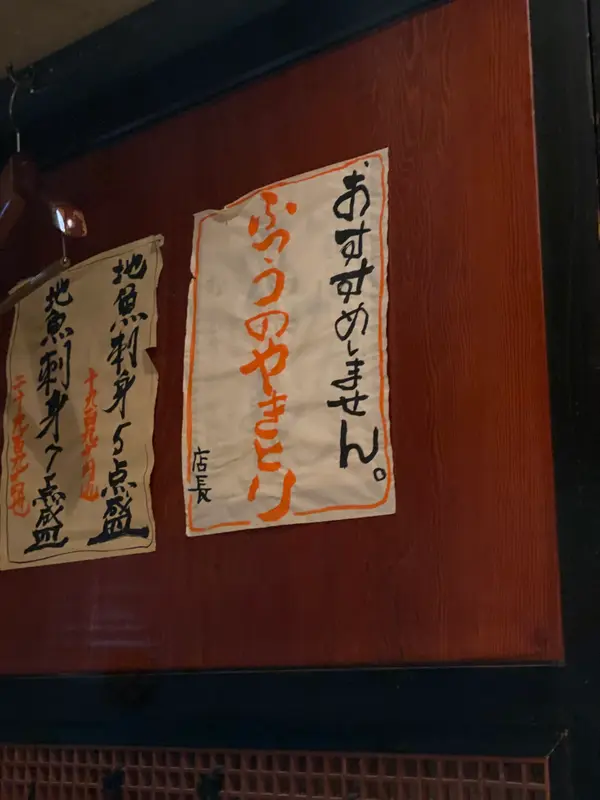 おすすめしません。
ふつうのやきとり
店長
地魚刺身5点盛
地魚刺身7点盛